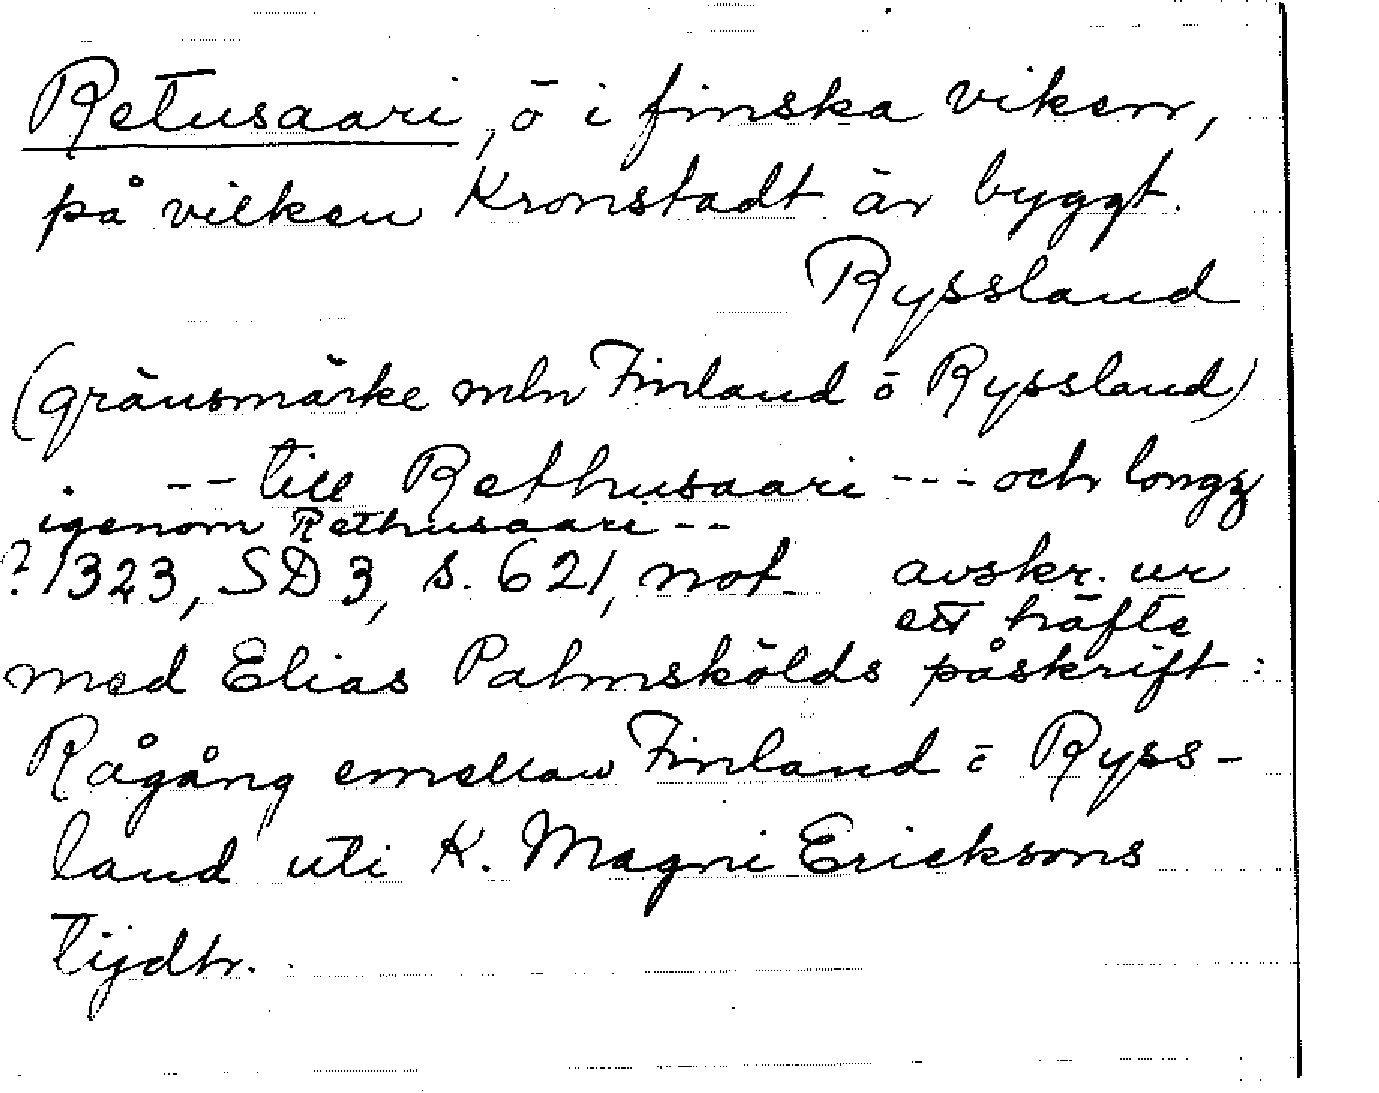 Retusaari, ö i finska viken,
på vilken Kronstadt är byggt.
Ryssland
(gränsmärke mln Finland ō Ryssland)
. -- till Rethusaari --- och longz
igenom Rethusaari --
? 1323, SD 3, s. 621, not. avskr. ur
ett häfte
med Elias Palmskölds påskrift:
Rågång emellan Finland ō Ryss-
land uti K. Magni Ericksons
tijdh.